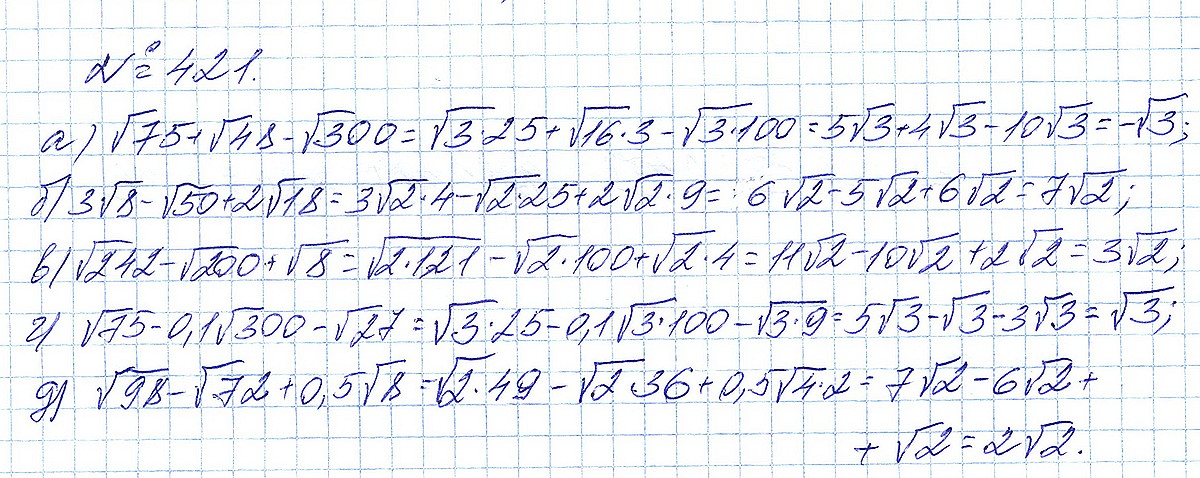 № 421.
а) √75+√48-√300=√3·25+√16·3-√3·100=5√3+4√3-10√3=-√3;
б) 3√8-√50+2√18=3√2·4-√2·25+2√2·9=6√2-5√2+6√2=7√2;
в) √242-√200+√8=√2·121-√2·100+√2·4=11√2-10√2+2√2=3√2;
г) √75-0,1√300-√27=√3·25-0,1√3·100-√3·9=5√3-√3-3√3=√3;
д) √98-√72+0,5√8=√2·49-√2·36+0,5√4·2=7√2-6√2+
+√2=2√2.